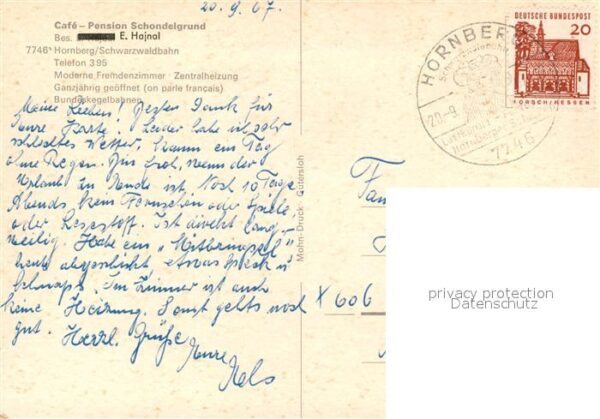 20.9.67.
Café – Pension Schondelgrund
Bes. E. Hajnal
7746 Hornberg/Schwarzwaldbahn
Telefon 395
Moderne Fremdenzimmer · Zentralheizung
Ganzjährig geöffnet (on parle français)
Bundeskegelbahnen
Meine Lieben! Besten Dank für
Eure Karte. Leider habe ich sehr
schlechtes Wetter, kaum ein Tag
ohne Regen. Bin froh, wenn der
Urlaub zu Ende ist. Noch 10 Tage
Abends kein Fernsehen oder Spiele
oder Lesestoff. Ist direkt lang-
weilig. Habe ein
heute abgeschickt etwas Speck u
Schnaps. Im Zimmer ist auch
keine Heizung. Sonst gehts noch
gut. Herzl. Grüße
Eure
Mohn-Druck · Gütersloh
HORNBERG
20.-9.
7746
DEUTSCHE BUNDESPOST
20
LORSCH/HESSEN
Fa
X 606
privacy protection
Datenschutz